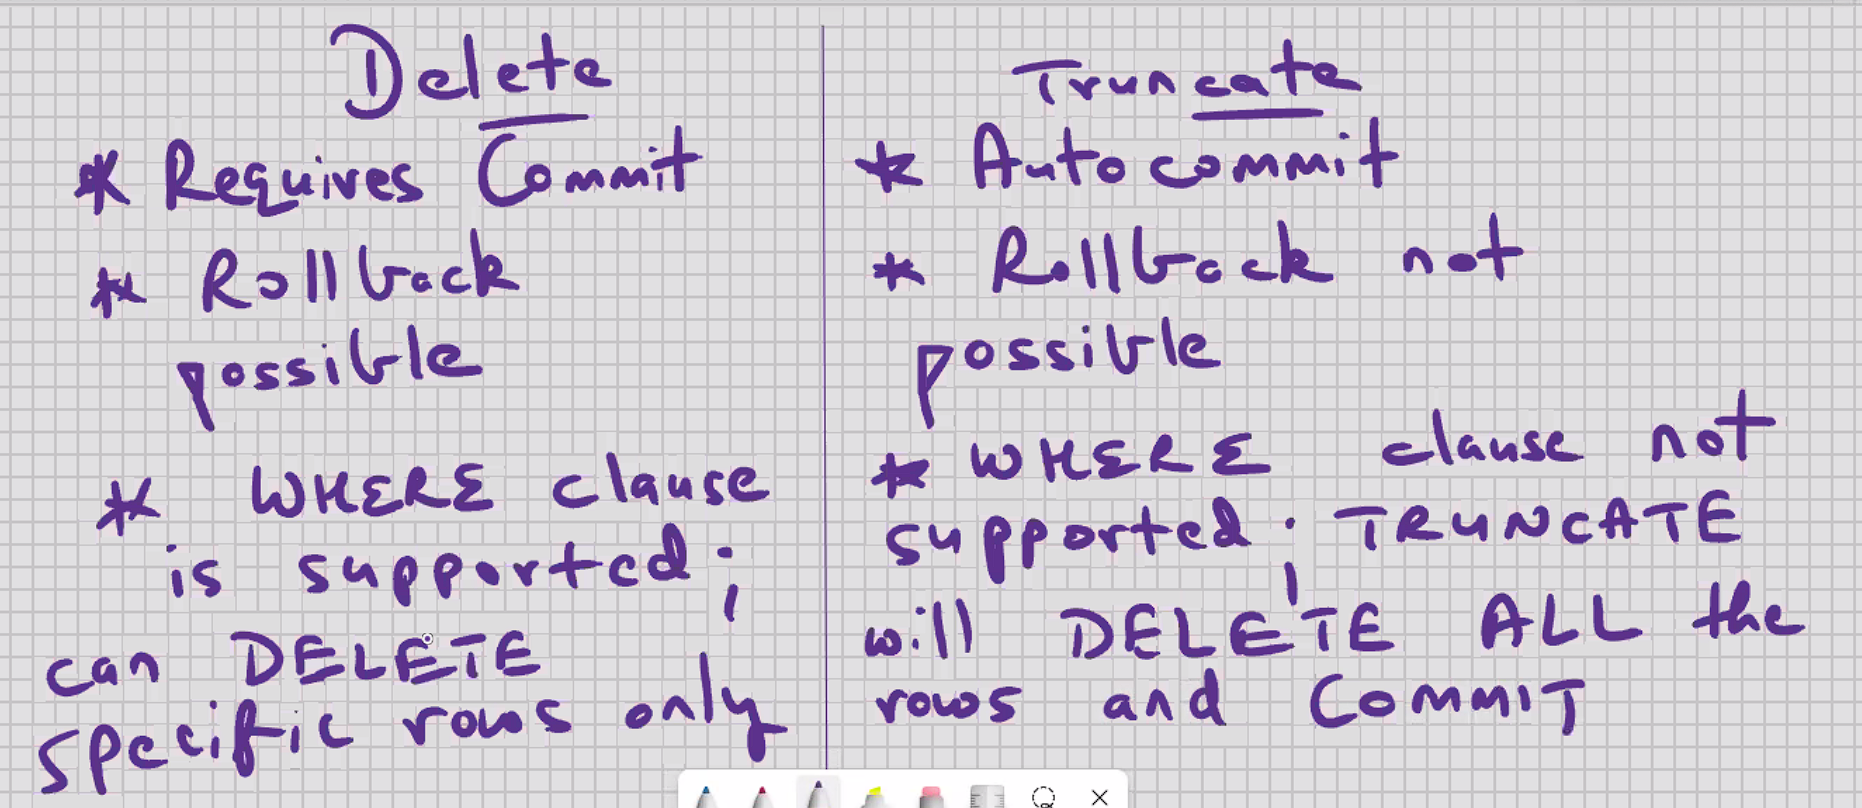 Delete
* Requires Commit
* Rollback
possible
* WHERE clause
is supported;
can DELETE
specific rows only
Truncate
* Autocommit
* Rollback not
possible
* WHERE clause not
supported; TRUNCATE
will DELETE ALL the
rows and COMMIT